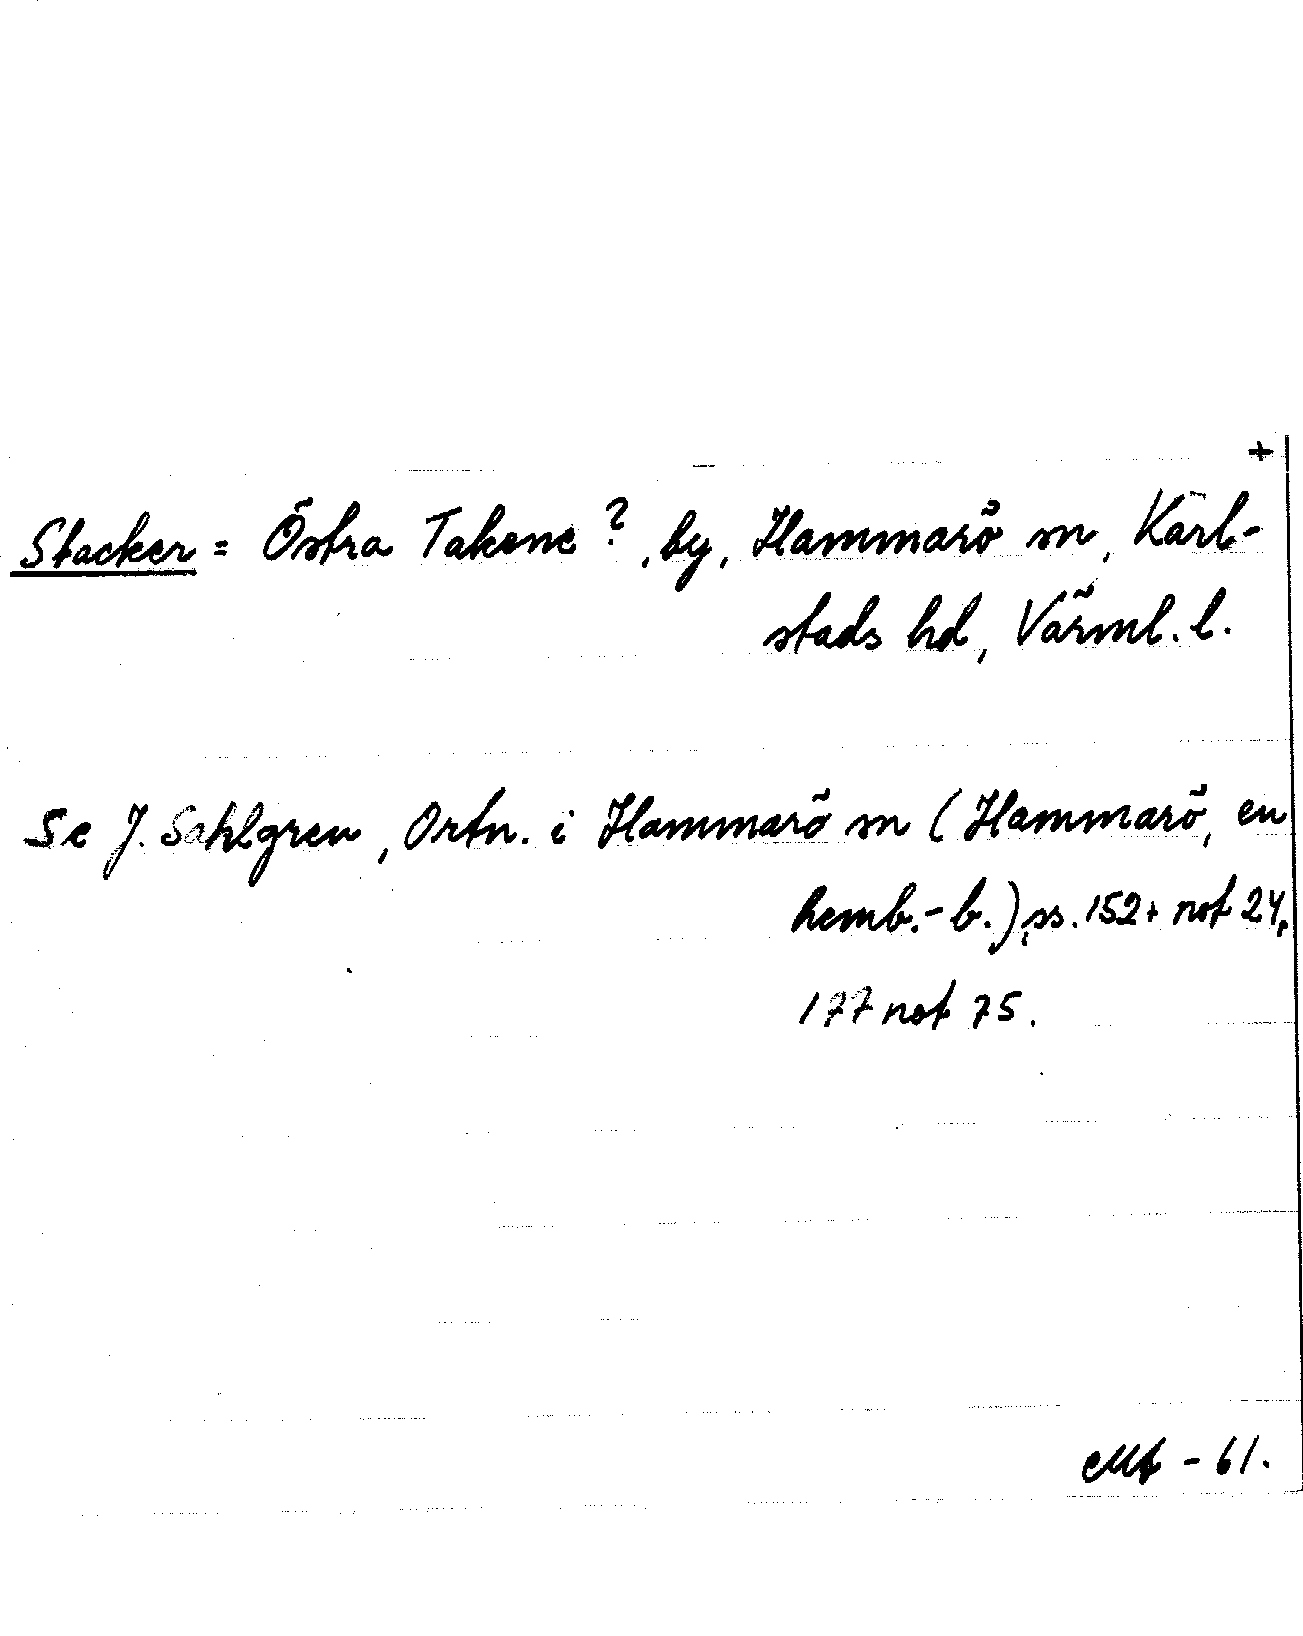 +
Stacker = Östra Takene?, by, Hammarö sn, Karl-
stads hd, Värml. l.
Se J. Sahlgren, Ortn. i Hammarö sn (Hammarö, en
hemb.-b.), ss. 152 + not 24,
177 not 75.
- 61.